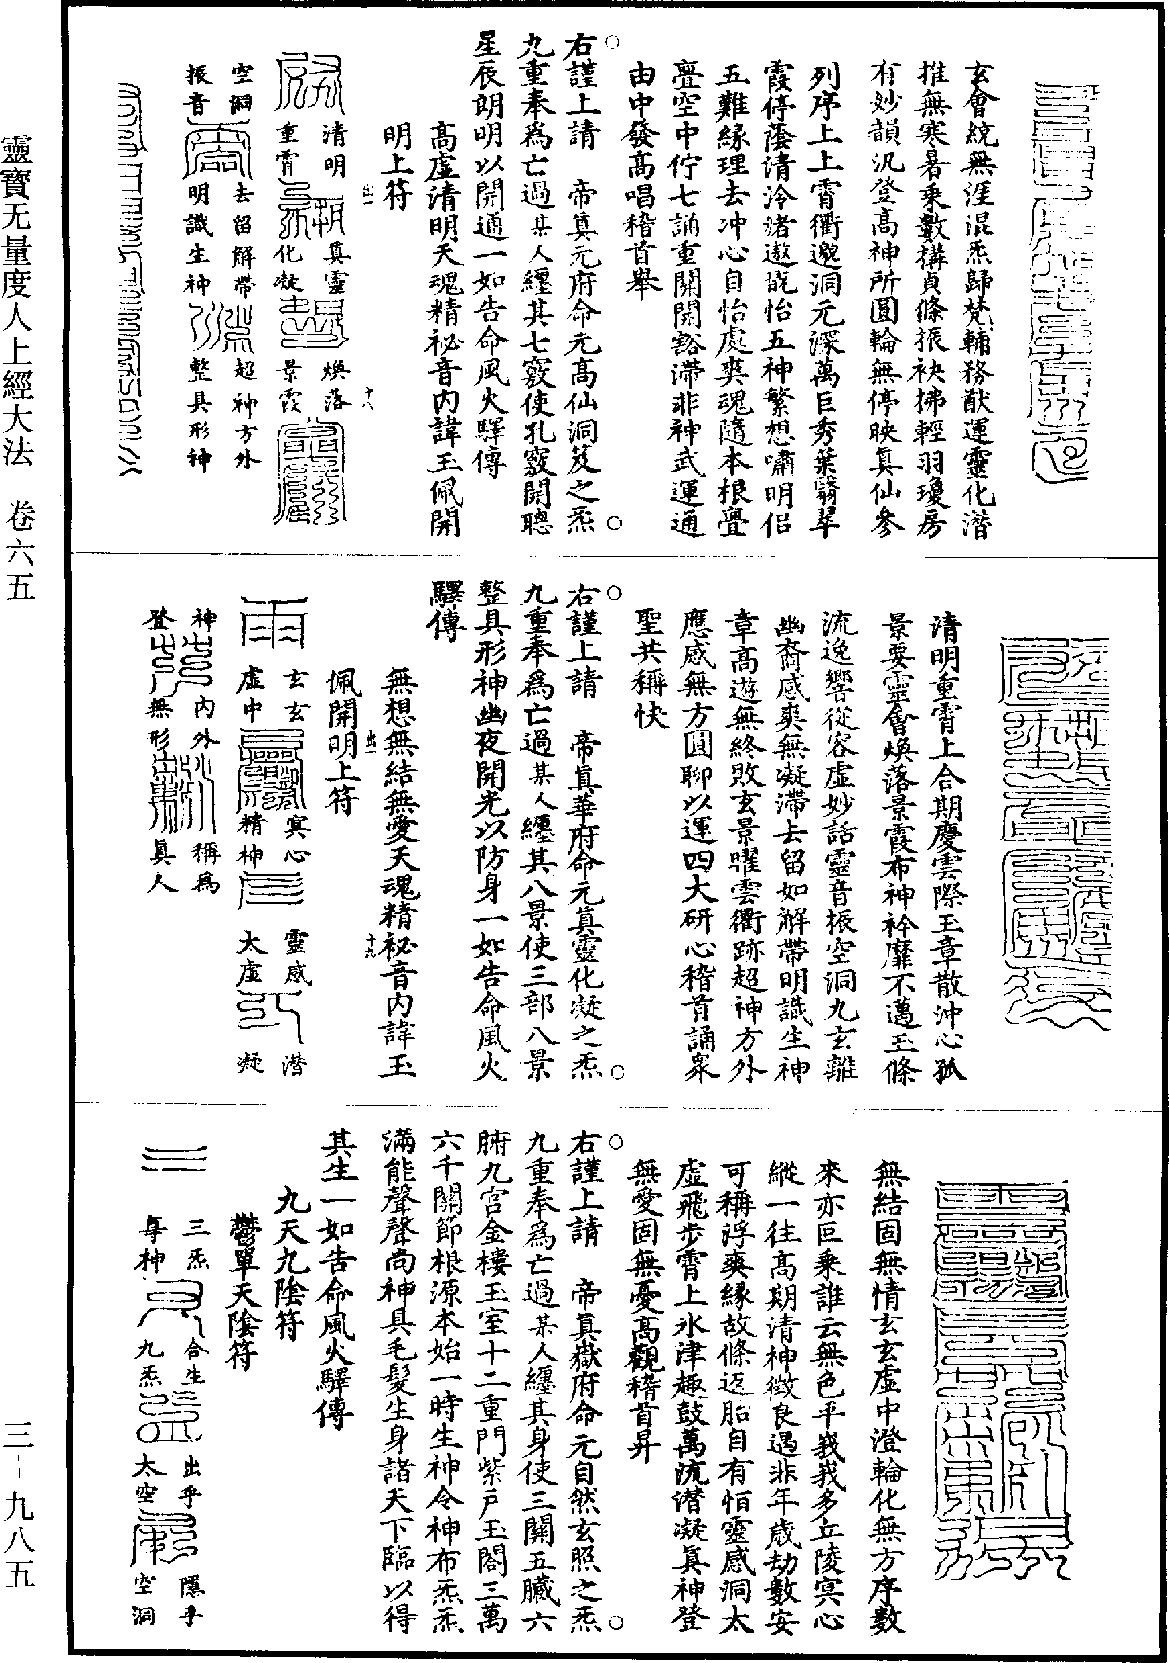 玄會統無涯混炁歸梵輔務猷運靈化潛
推無寒暑乘數構貞條振袂拂輕羽瓊房
有妙韻汎登高神所圓輪無停映真仙參
列序上上霄衢邈洞元深萬巨秀葉翳翠
霞停蔭清泠渚遨翫怡五神繁想嘯明侶
五難緣理去冲心自怡處爽魂隨本根亹亹
空中佇七誦重關開豁滯非神武運通
由中發高唱稽首舉
右謹上請　帝真元府命元高仙洞笈之炁
九重奉為亡過某人纏其七竅使孔竅開聰
星辰朗明以開通一如告命風火驛傳
高虛清明天魂精祕音內諱玉佩開
明上符
清明　真靈　煥落
重霄　化凝　景霞
空洞　去留解帶　超神方外
振音　明識生神　整具形神
清明重霄上合期慶雲際玉章散沖心孤
景要靈會煥落景霞布神衿靡不邁玉條
流逸響從容虛妙話靈音振空洞九玄離
幽裔感爽無凝滯去留如解帶明識生神
章高遊無終敗玄景曜雲衢跡超神方外
應感無方圓聊以運四大研心稽首誦眾
聖共稱快
右謹上請　帝真華府命元真靈化凝之炁
九重奉為亡過某人纏其八景使三部八景
整具形神幽夜開光以防身一如告命風火
驛傳
無想無結無愛天魂精祕音內諱玉
佩開明上符
玄玄　冥心　靈感　潛
虛中　精神　太虛　凝
神　內外　稱為
登　無形　真人
無結固無情玄玄虛中澄輪化無方序數
來亦叵乘誰云無色平峩峩多丘陵冥心
縱一往高期清神徵良遇非年歲劫數安
可稱浮爽緣故條返胎自有恒靈感洞太
虛飛步霄上氷津趣鼓萬流潛凝真神登
無愛固無憂高觀稽首昇
右謹上請　帝真嶽府命元自然玄照之炁
九重奉為亡過某人纏其身使三關五臟六
腑九宮金樓玉室十二重門紫戶玉閣三萬
六千關節根源本始一時生神令神布炁炁
滿能聲聲尚神具毛髮生身諸天下臨以得
其生一如告命風火驛傳
九天九陰符
鬱單天陰符
三炁　合生　出乎　隱乎
每神　九炁　太空　空洞
靈寶无量度人上經大法　卷六五
三－九八五